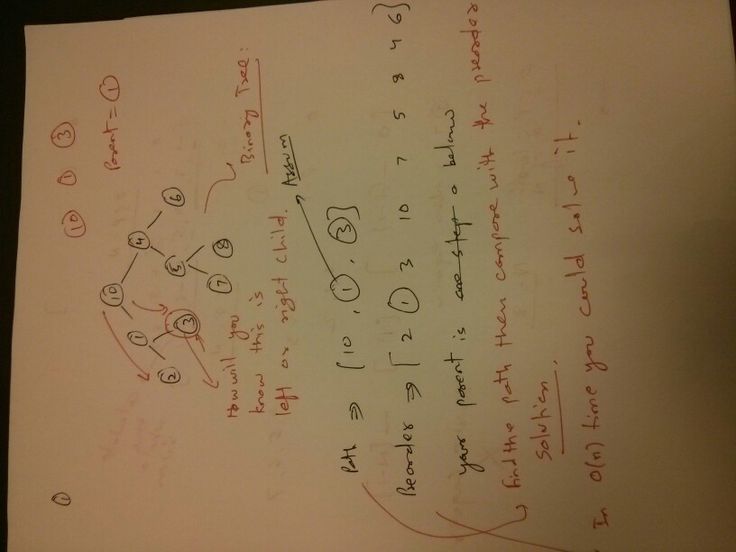 ①
10 1 3
Parent = 1
10
1
4
2
3
5
6
7
8
Binary Tree:
How will you
know this is
left or right child.
Assum
Path ⇒ [10, 1, 3]
Preorder ⇒ [2 1 3 10 7 5 8 4 6]
your parent is one step o below
find the path then compare with the preorder
Solution.
In O(n) time you could solve it.